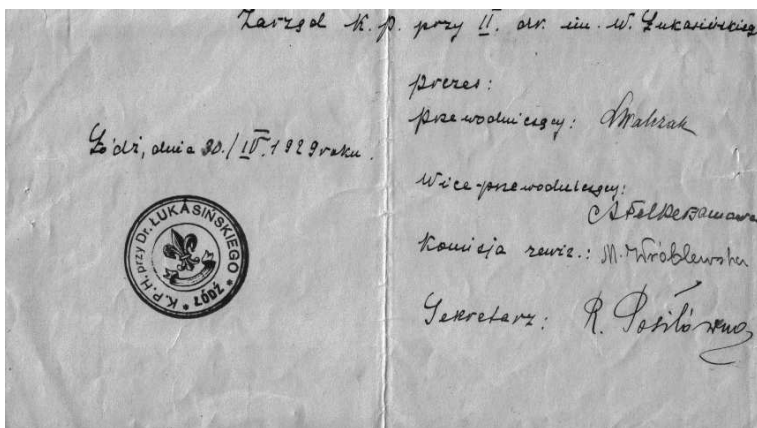 Zarząd K. p. przy II. dr. im. W. Łukasińskieg
prezes:
przewodniczący: Walczak
Łódź, dnia 30./IV.1929 roku.
Wice-przewodniczący:
Komisja rewiz.: M. Wróblewska
Sekretarz: R. Posiłówna
* K.P.H. przy Dr. ŁUKASIŃSKIEGO * ŁÓDŹ